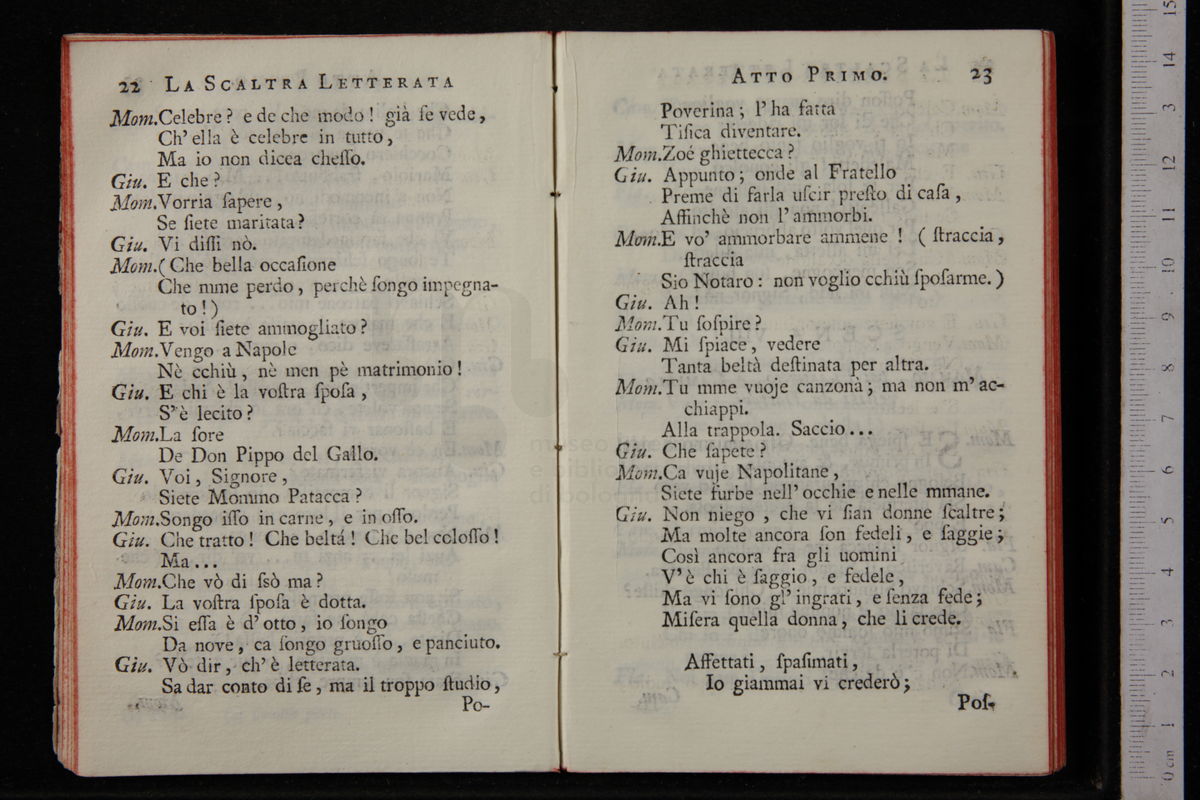 22 LA SCALTRA LETTERATA
Mom.Celebre ? e de che modo ! già ſe vede,
Ch' ella è celebre in tutto,
Ma io non dicea cheſſo.
Giu. E che ?
Mom.Vorria ſapere,
Se ſiete maritata ?
Giu. Vi diſſi nò.
Mom.( Che bella occaſione
Che mme perdo, perchè ſongo impegna-
to ! )
Giu. E voi ſiete ammogliato ?
Mom.Vengo a Napole
Nè cchiù, nè men pè matrimonio !
Giu. E chi è la voſtra ſpoſa,
S'è lecito ?
Mom.La ſore
De Don Pippo del Gallo.
Giu. Voi, Signore,
Siete Mommo Patacca ?
Mom.Songo iſſo in carne, e in oſſo.
Giu. Che tratto ! Che beltá ! Che bel coloſſo !
Ma...
Mom.Che vò di ſsò ma ?
Giu. La voſtra ſpoſa è dotta.
Mom.Si eſſa è d' otto, io ſongo
Da nove, ca ſongo gruoſſo, e panciuto.
Giu. Vò dir, ch' è letterata.
Sa dar conto di ſe, ma il troppo ſtudio,
Po-
ATTO PRIMO. 23
Poverina ; l' ha fatta
Tiſica diventare.
Mom.Zoé ghiettecca ?
Giu. Appunto ; onde al Fratello
Preme di farla uſcir preſto di caſa,
Affinchè non l' ammorbi.
Mom.E vo' ammorbare ammene ! ( ſtraccia,
ſtraccia
Sio Notaro : non voglio cchiù ſpoſarme. )
Giu. Ah !
Mom.Tu ſoſpire ?
Giu. Mi ſpiace, vedere
Tanta beltà deſtinata per altra.
Mom.Tu mme vuoje canzonà ; ma non m' ac-
chiappi.
Alla trappola. Saccio...
Giu. Che ſapete ?
Mom.Ca vuje Napolitane,
Siete furbe nell' occhie e nelle mmane.
Giu. Non niego, che vi ſian donne ſcaltre ;
Ma molte ancora ſon fedeli, e ſaggie ;
Così ancora fra gli uomini
V' è chi è ſaggio, e fedele,
Ma vi ſono gl' ingrati, e ſenza fede ;
Miſera quella donna, che li crede.
Affettati, ſpaſimati,
Io giammai vi crederò ;
Poſ-